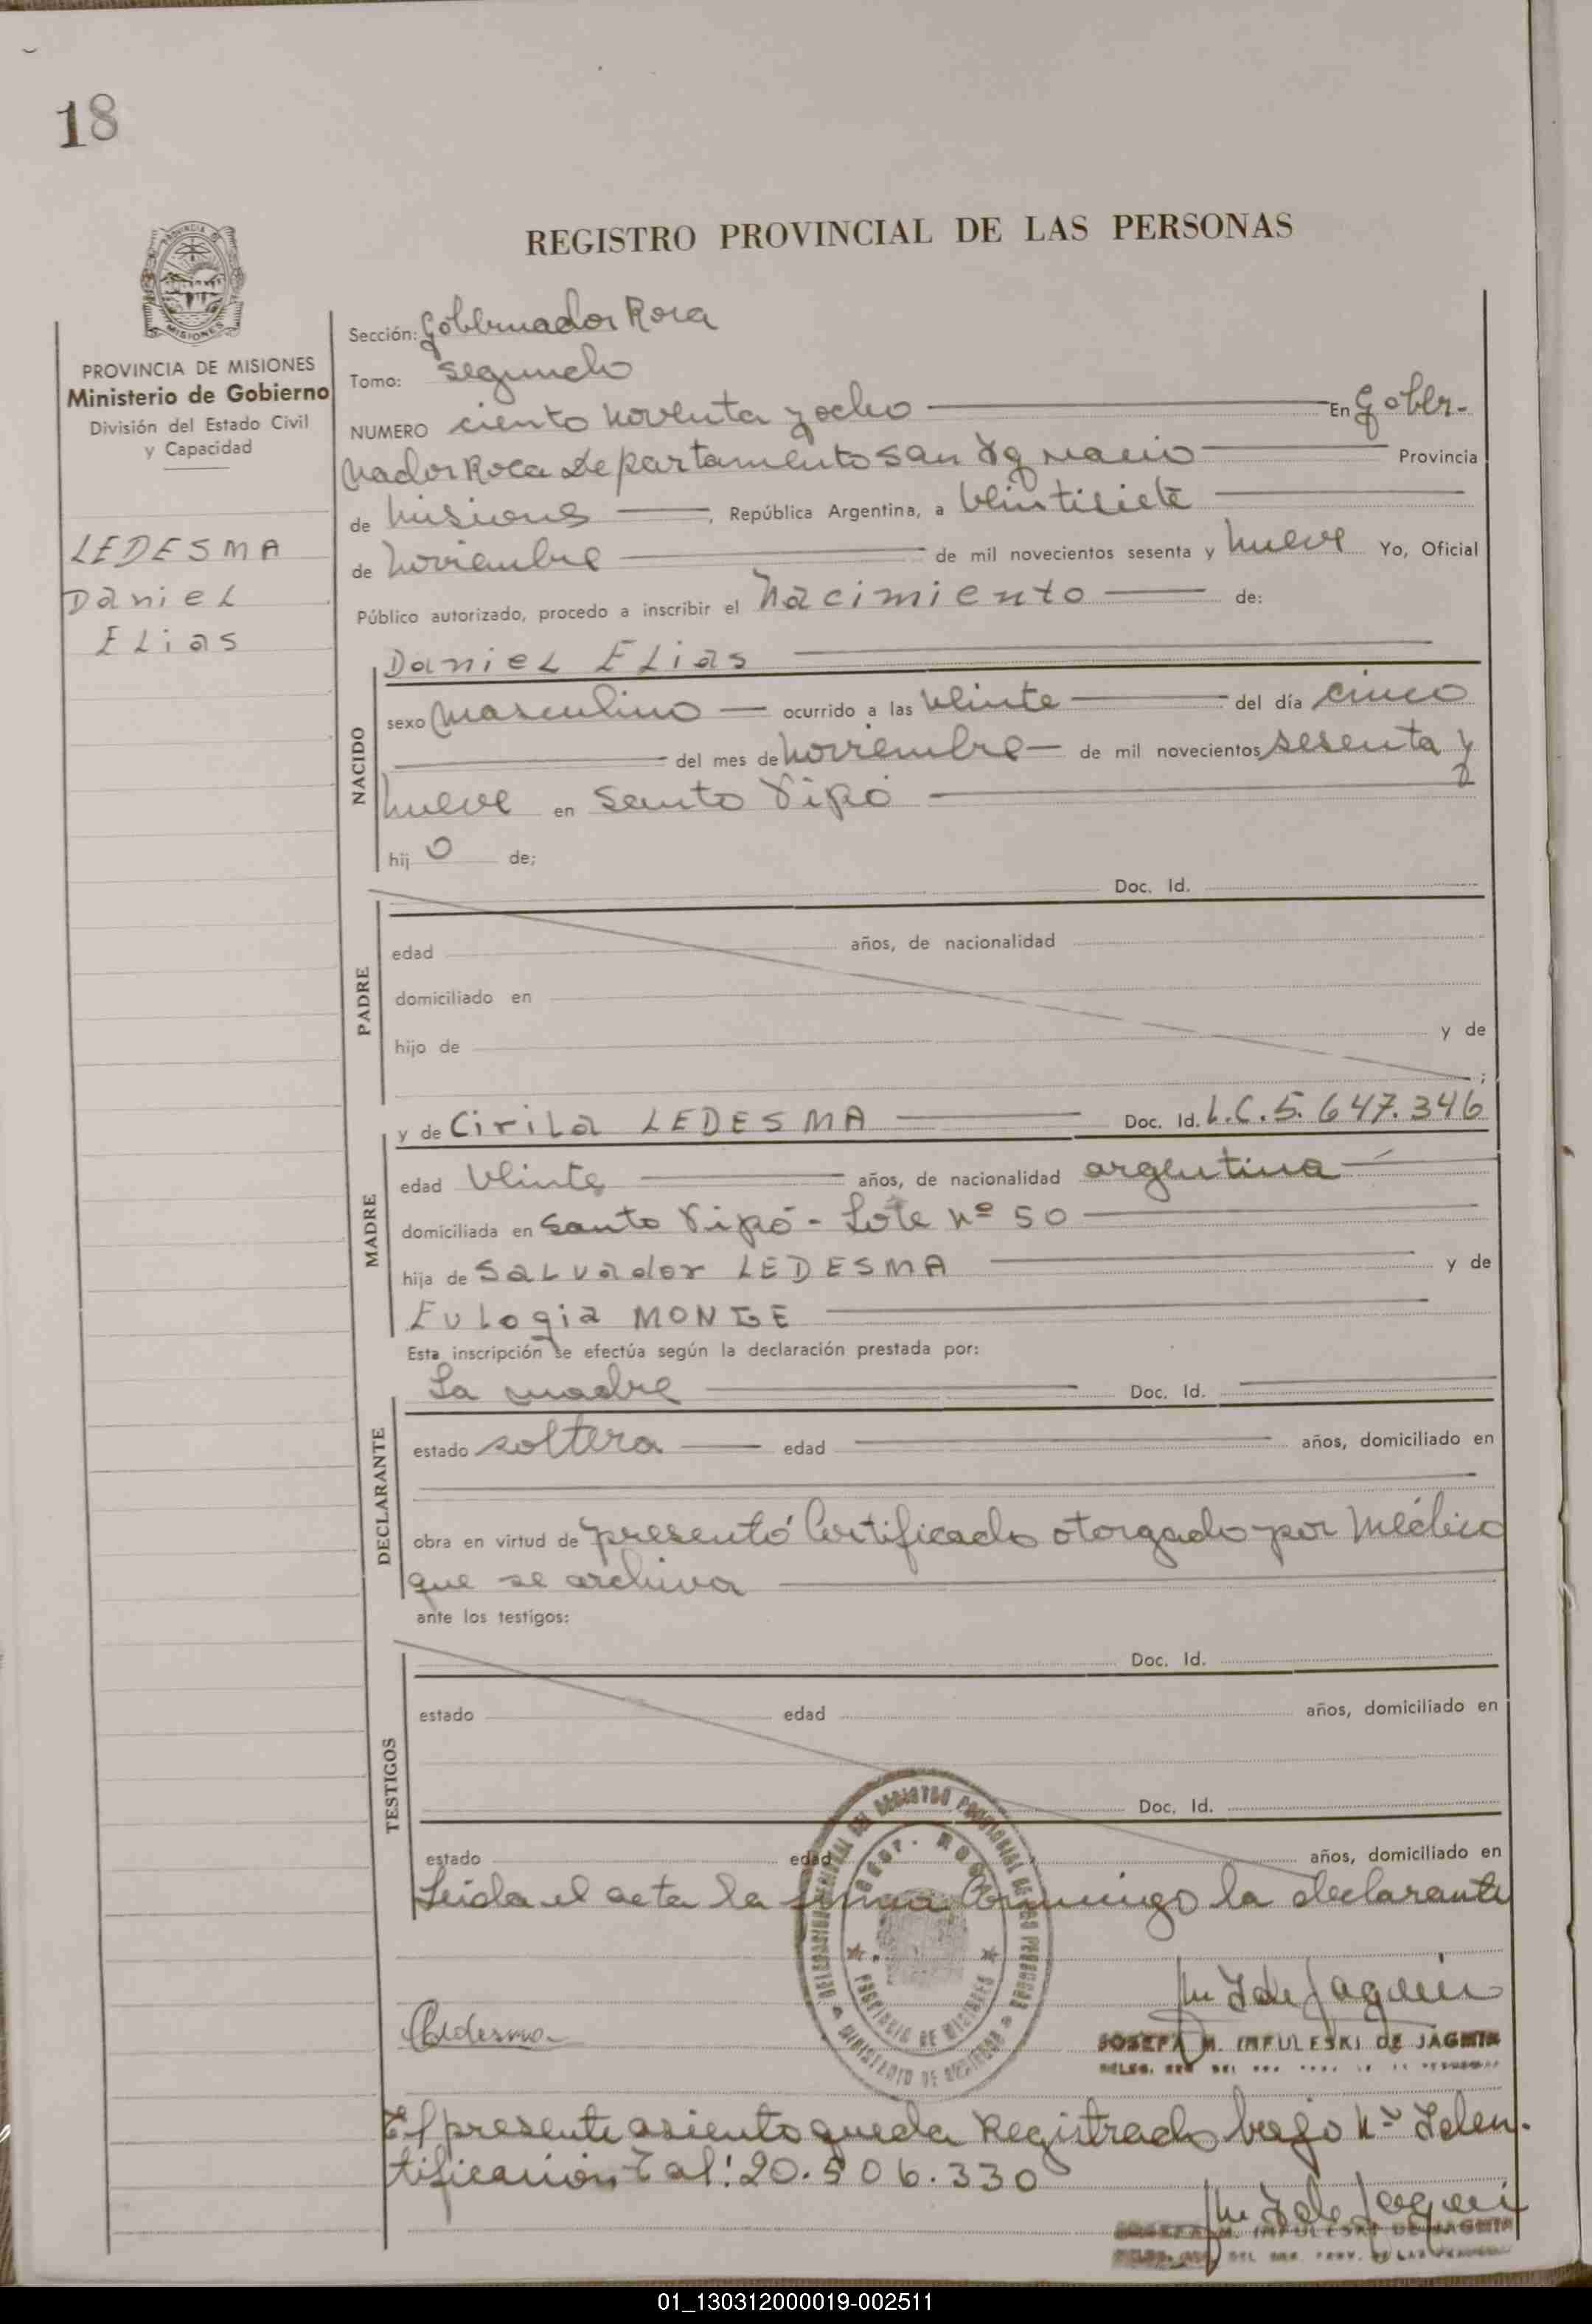 18
REGISTRO PROVINCIAL DE LAS PERSONAS
PROVINCIA DE MISIONES
MISIONES
PROVINCIA DE MISIONES
Ministerio de Gobierno
División del Estado Civil
y Capacidad
LEDESMA
Daniel
Elias
Sección: Gobernador Roca
Tomo: Segundo
NUMERO ciento noventa y ocho En Gober-
nador Roca Departamento San Ignacio Provincia
de Misiones, República Argentina, a veintisiete
de noviembre de mil novecientos sesenta y nueve Yo, Oficial
Público autorizado, procedo a inscribir el nacimiento de:
NACIDO
Daniel Elias
sexo masculino ocurrido a las veinte del día cinco
del mes de noviembre de mil novecientos sesenta y
nueve en Santo Pipó
hijo de:
PADRE
Doc. Id.
edad años, de nacionalidad
domiciliado en
hijo de y de
;
MADRE
y de Cirila LEDESMA Doc. Id. L.C.5.647.346
edad veinte años, de nacionalidad argentina
domiciliada en Santo Pipó - Lote Nº 50
hija de Salvador LEDESMA y de
Eulogia MONGE
Esta inscripción se efectúa según la declaración prestada por:
DECLARANTE
La madre Doc. Id.
estado soltera edad años, domiciliado en
obra en virtud de presentó Certificado otorgado por Médico
que se archiva
ante los testigos:
TESTIGOS
Doc. Id.
estado edad años, domiciliado en
Doc. Id.
estado edad años, domiciliado en
Leida el acta la firma Conmigo la declarante
DEL REGISTRO PROVINCIAL DE LAS PERSONAS
GDOR. ROCA
PROVINCIA DE MISIONES
MINISTERIO DE GOBIERNO
CLedesma
M I de Jagmin
JOSEFA M. IMPULESKI DE JAGMIN
El presente asiento queda Registrado bajo Nº Iden-
tificación Tal: 20.506.330
M I de Jagmin
JOSEFA M. IMPULESKI DE JAGMIN
DELEG. REG. DEL REG. PROV. DE LAS PERSONAS
01_130312000019-002511